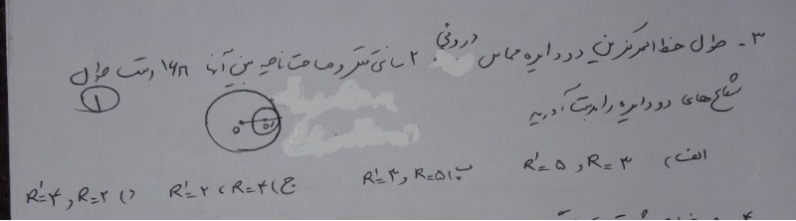 ۳- طول خط المرکزین دو دایره مماس درونی ۲ سانتی متر و مساحت ناحیه بین آنها ۱۶π است طول
شعاع های دو دایره را بدست آورید
۱
O O'
الف) R=۳ , R'=۵ ب) R=۵ , R'=۳ ج) R=۴ , R'=۲ د) R=۲ , R'=۴